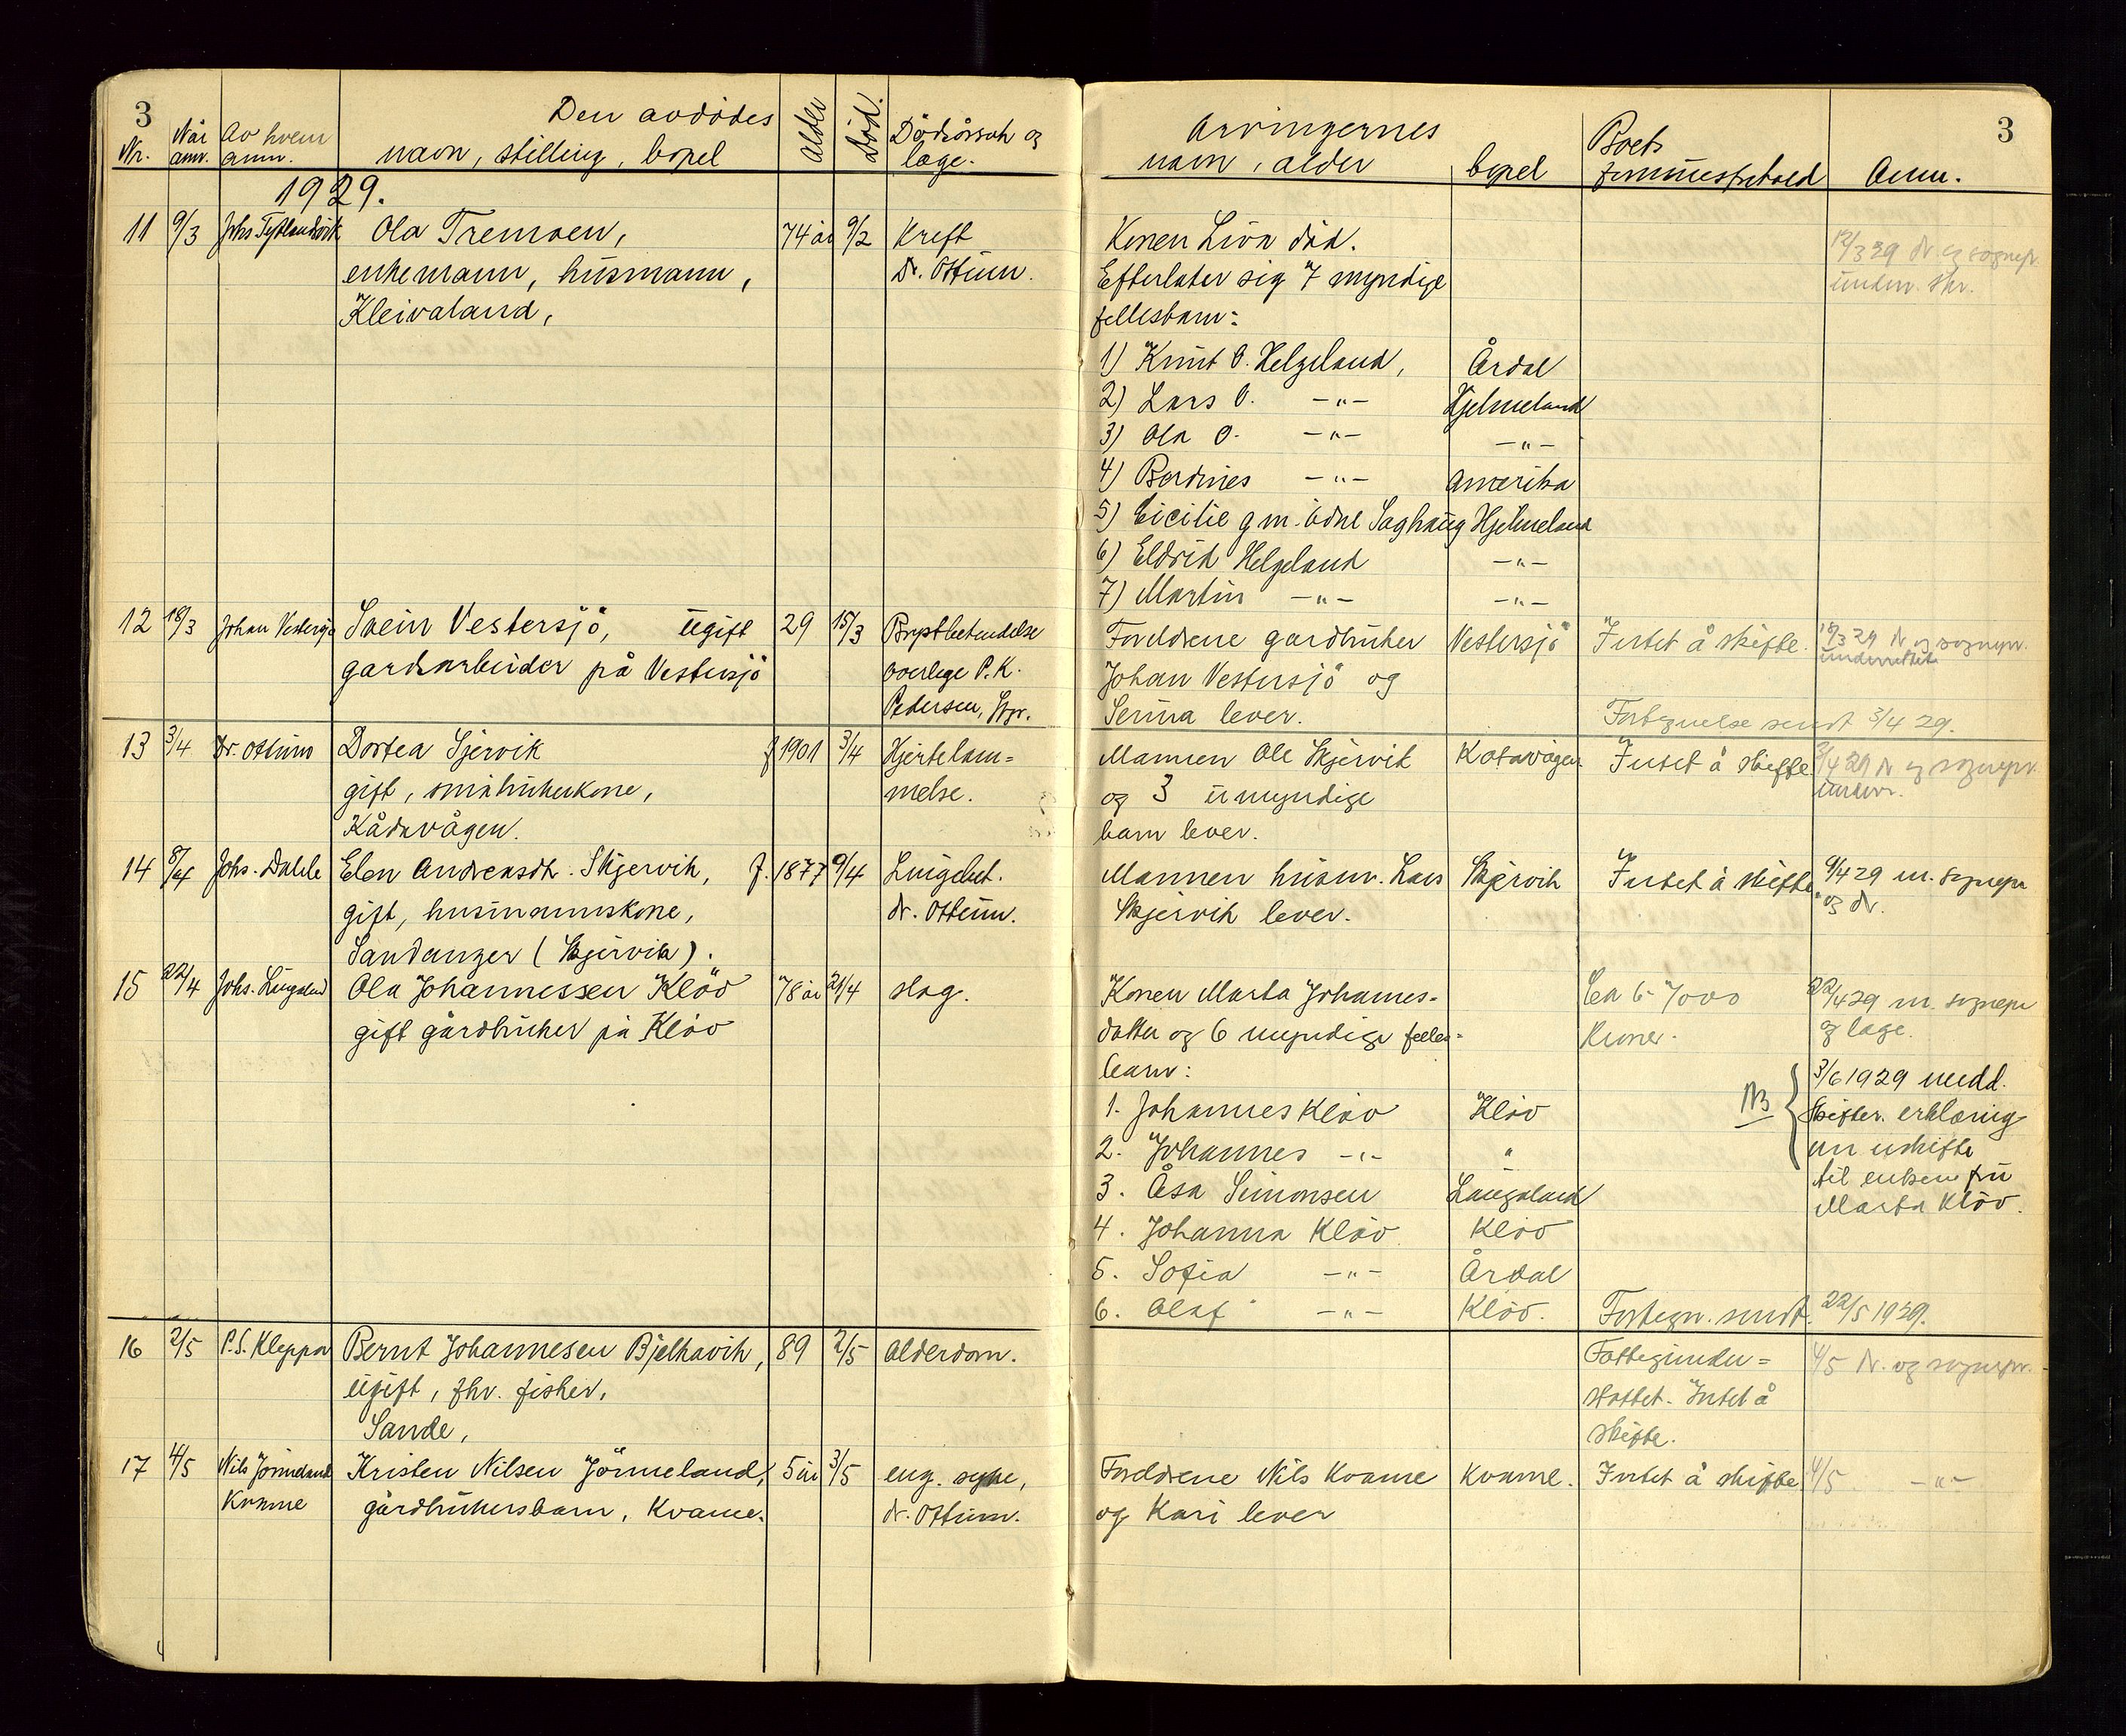 3
Den avdödes
Nr.
Når anm.
Av hvem anm.
navn, stilling, bopel
Alder
Död.
Dödsårsak og
læge.
Arvingernes
navn, alder
bopel
Boets
formuesforhold
Anm.
3
1929.
11 9/3 Ola Tremoen, 74 år 9/2 Kreft
enkemann, husmann, Dr. Ottum.
Kleivaland,
Konen Liva död.
Efterlater sig 7 myndige
fellesbarn:
1) Knut O. Helgeland, Årdal
2) Lars O. -"- Hjelmeland
3) Ola O. -"- -"-
4) Bordines -"- Amerika
5) Cicilie g.m. Ådne Saghaug Hjelmeland
6) Eldrid Helgeland -"-
7) Martin -"- -"-
12/3 29 dr. og sognepr.
underr. skr.
12 18/3 Johan Vestersjö Svein Vestersjö, ugift 29 15/3 Brystbetendelse
gardsarbeider på Vestersjö overlege P.K.
Pedersen, Stgr.
Foreldrene gardbruker Vestersjö Intet å skifte. 18/3 29 dr og sognepr.
Johan Vestersjö og underrettet
Serina lever. Fortegnelse sendt 3/4 29.
13 3/4 Dr. Ottum Dortea Sjervik f 1901 3/4 Hjertelam=
gift, småbrukerkone, melse.
Kådavågen.
Mannen Ole Skjervik Kotavågen Intet å skifte 3/4 29 dr og sognepr.
og 3 umyndige underr.
barn lever.
14 8/4 Johs. Dalele Elen Andreasdtr. Skjervik, f. 1877 9/4 Lungebet.
gift, husmannskone, dr. Ottum.
Sandanger (Skjervik).
Mannen husm. Lars Skjervik Intet å skifte 9/4 29 m. sognepr
Skjervik lever. og dr.
15 22/4 Johs. Lungeland Ola Johannessen Klöv 78 år 21/4 slag.
gift gårdbruker på Klöv
Konen Marta Johannes- Ca 6-7000 22/4 29 m. sognepr
datter og 6 myndige felles- Kroner. og læge.
barn:
1. Johannes Klöv Klöv
2. Johannes -"- "
3. Åsa Simonsen Laugaland
4. Johanna Klöv Klöv
5. Sofia -"- Årdal
6. Olaf -"- Klöv. Fortegn. sendt. 22/5 1929.
NB { 3/6 1929 medd.
skifter. erklæring
om uskifte
til enken fru
Marta Klöv.
16 2/5 P.S. Kleppa Bernt Johannesen Bjelkavik, 89 2/5 Alderdom.
ugift, fhv. fisker,
Sande,
Fattigunder= 4/5 dr. og sognepr.
stöttet. Intet å
skifte.
17 4/5 Nils Jönneland Kristen Nilsen Jönneland, 5 år 3/5 eng. syke,
Kvame gårdbrukersbarn, Kvame. dr. Ottum.
Foreldrene Nils Kvame Kvame. Intet å skifte 4/5 -"-
og Kari lever